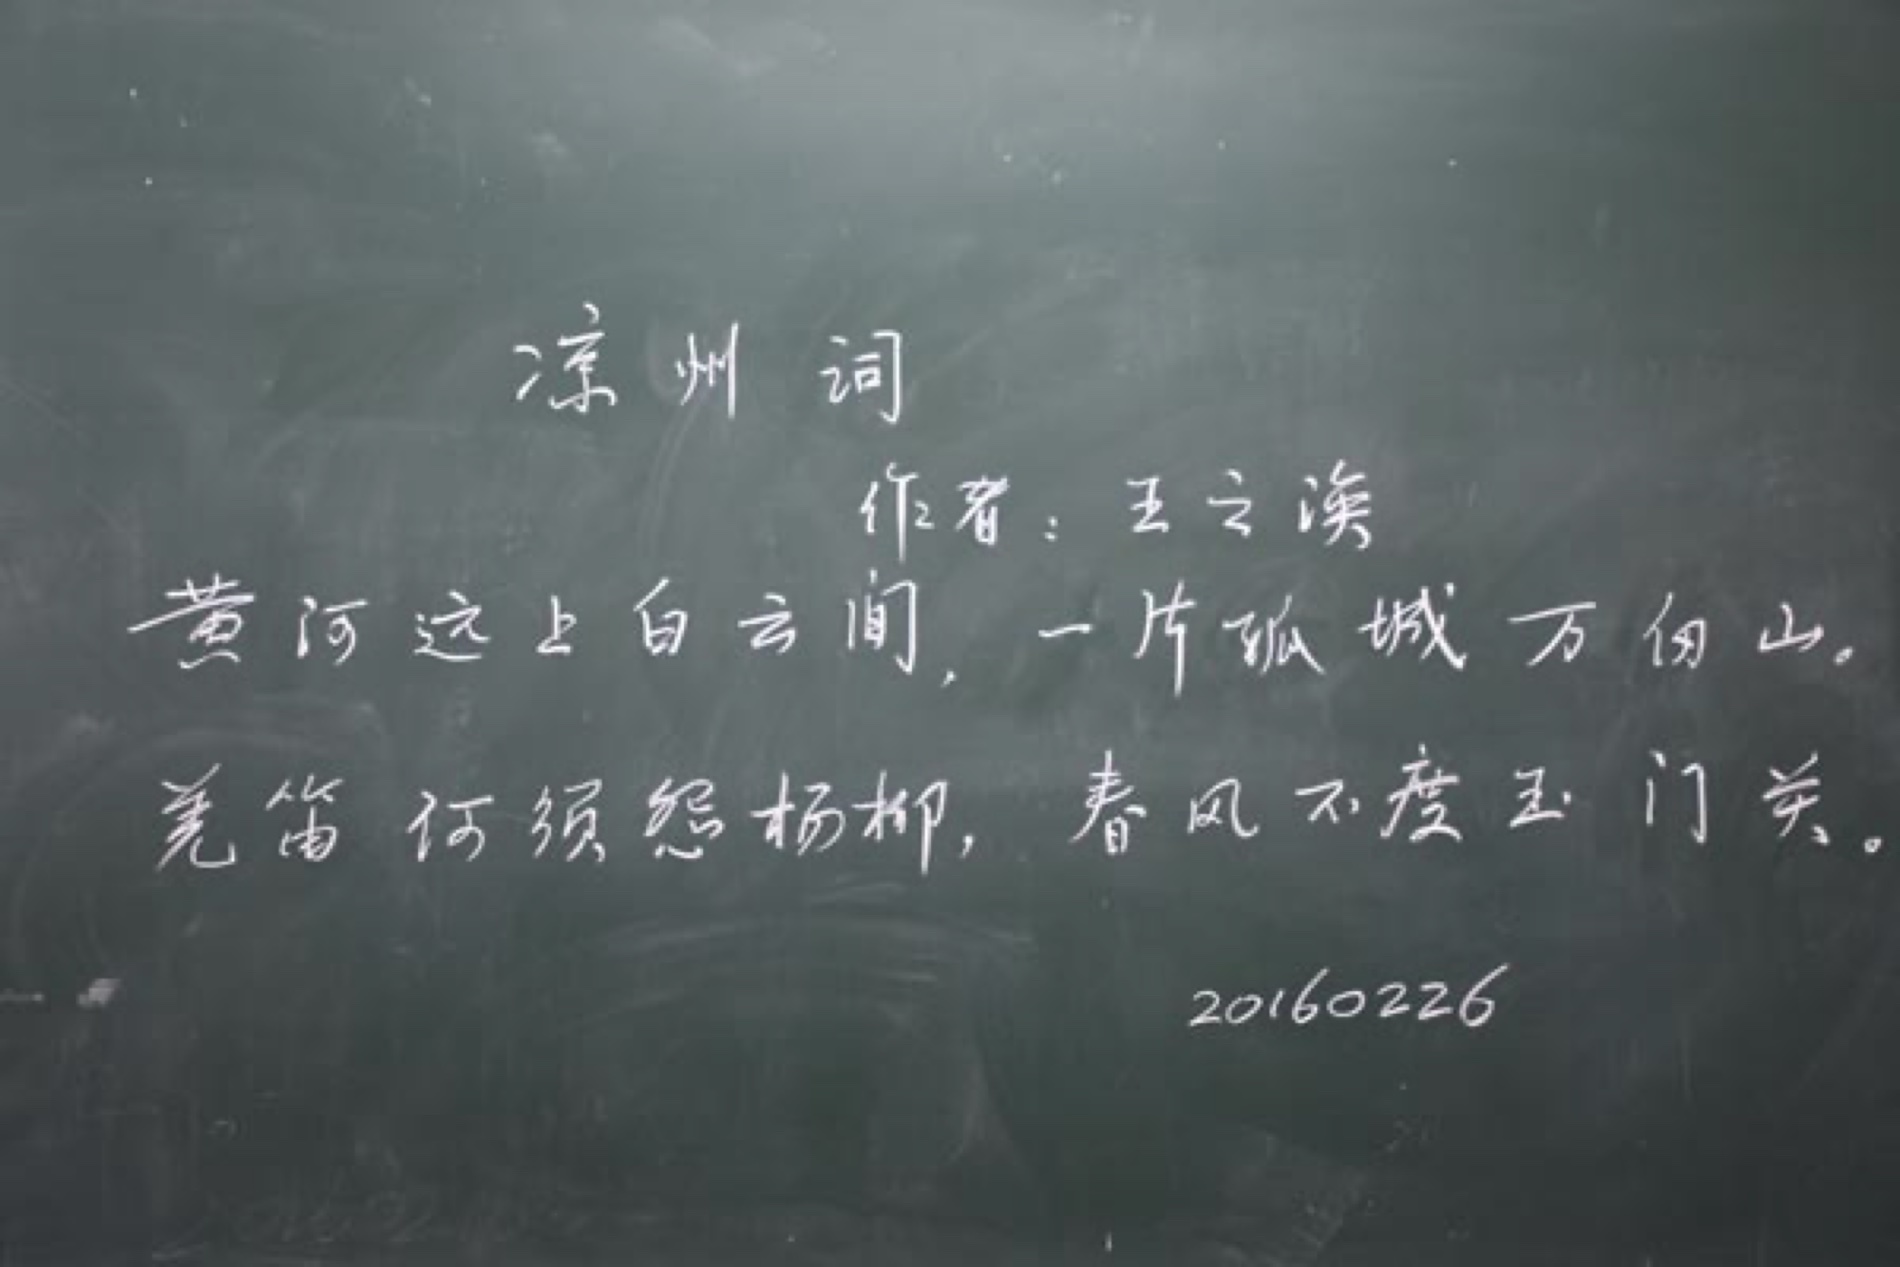 凉州词
作者：王之涣
黄河远上白云间，一片孤城万仞山。
羌笛何须怨杨柳，春风不度玉门关。
20160226